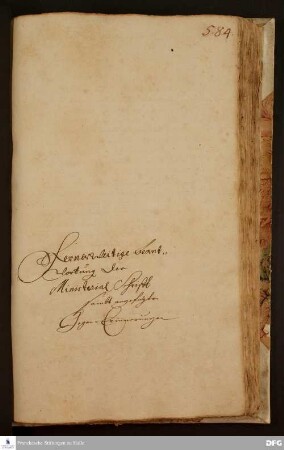 584.
Fernerweitige Beant„
wortung der
Ministerial Schrifft
sambt angefügten
Gegen-Erinnerungen
Franckesche Stiftungen zu Halle
DFG